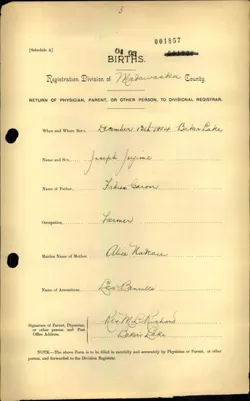 3
001857
[Schedule A]
BIRTHS.
Registration Division of Madawaska County
RETURN OF PHYSICIAN, PARENT, OR OTHER PERSON, TO DIVISIONAL REGISTRAR.
When and Where Born. December 13th Baker Lake
Name and Sex. Joseph
Name of Father.
Occupation. Farmer
Maiden Name of Mother. Alice Nadeau
Name of Accoucheur. Leo
Signature of Parent, Physician, or other person and Post Office Address.
Rev M L Richard
Baker Lake
NOTE.—The above Form is to be filled in carefully and accurately by Physician or Parent, or other person, and forwarded to the Division Registrar.